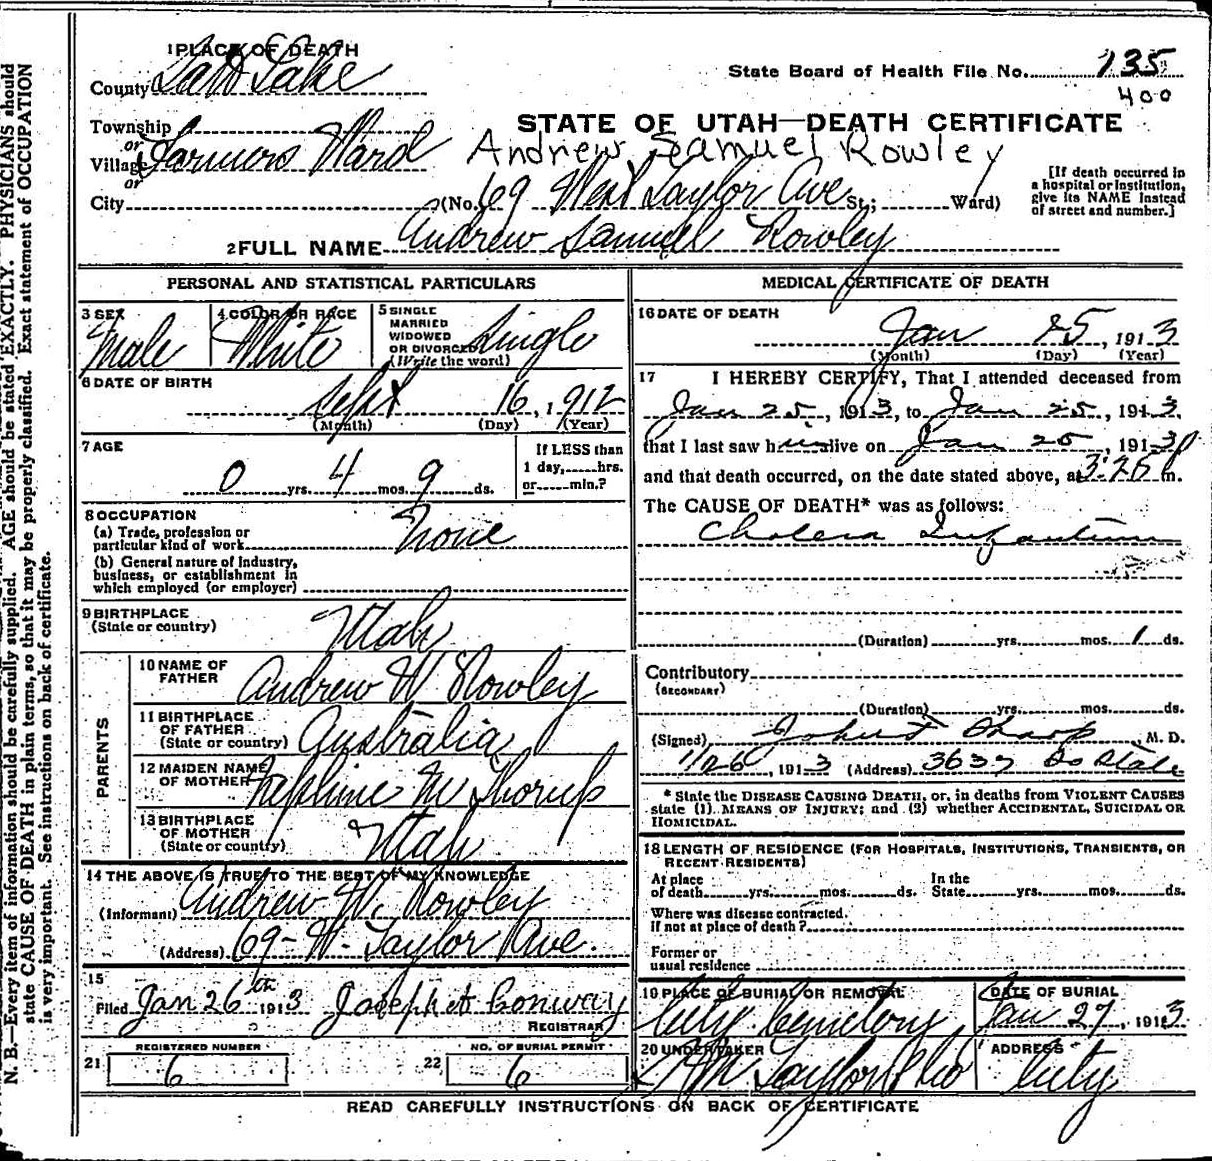 N. B.—Every item of information should be carefully supplied. AGE should be stated EXACTLY. PHYSICIANS should
state CAUSE OF DEATH in plain terms, so that it may be properly classified. Exact statement of OCCUPATION
is very important. See instructions on back of certificate.
1 PLACE OF DEATH
County Salt Lake
State Board of Health File No. 135
400
Township
or
Village Farmers Ward
or
City
STATE OF UTAH—DEATH CERTIFICATE
Andrew Samuel Rowley
(No. 69 West Taylor Ave St.; Ward)
[If death occurred in
a hospital or institution,
give its NAME instead
of street and number.]
2 FULL NAME Andrew Samuel Rowley
PERSONAL AND STATISTICAL PARTICULARS
3 SEX
Male
4 COLOR OR RACE
White
5 SINGLE
MARRIED
WIDOWED
OR DIVORCED
(Write the word)
Single
6 DATE OF BIRTH
Sept 16, 1912
(Month) (Day) (Year)
7 AGE
0 yrs. 4 mos. 9 ds.
If LESS than
1 day, hrs.
or min.?
8 OCCUPATION
(a) Trade, profession or
particular kind of work None
(b) General nature of industry,
business, or establishment in
which employed (or employer)
9 BIRTHPLACE
(State or country)
Utah
PARENTS
10 NAME OF
FATHER
Andrew W Rowley
11 BIRTHPLACE
OF FATHER
(State or country) Australia
12 MAIDEN NAME
OF MOTHER
M Thorup
13 BIRTHPLACE
OF MOTHER
(State or country)
Utah
14 THE ABOVE IS TRUE TO THE BEST OF MY KNOWLEDGE
(Informant) Andrew W. Rowley
(Address) 69 - W. Taylor Ave.
15
Filed Jan 26th 1913 Joseph H Conway
REGISTRAR
REGISTERED NUMBER
21 6
NO. OF BURIAL PERMIT
22 6
MEDICAL CERTIFICATE OF DEATH
16 DATE OF DEATH
Jan 25, 1913
(Month) (Day) (Year)
17 I HEREBY CERTIFY, That I attended deceased from
Jan 25, 1913, to Jan 25, 1913,
that I last saw him alive on Jan 25, 1913
and that death occurred, on the date stated above, at 3:25 P m.
The CAUSE OF DEATH* was as follows:
Cholera Infantum
(Duration) yrs. mos. 1 ds.
Contributory
(SECONDARY)
(Duration) yrs. mos. ds.
(Signed) Sharp, M. D.
1/26, 1913 (Address) 3637 So State
* State the DISEASE CAUSING DEATH, or, in deaths from VIOLENT CAUSES
state (1) MEANS OF INJURY; and (2) whether ACCIDENTAL, SUICIDAL OR
HOMICIDAL.
18 LENGTH OF RESIDENCE (FOR HOSPITALS, INSTITUTIONS, TRANSIENTS, OR
RECENT RESIDENTS)
At place
of death yrs. mos. ds.
In the
State yrs. mos. ds.
Where was disease contracted.
if not at place of death?
Former or
usual residence
19 PLACE OF BURIAL OR REMOVAL
City Cemetery
DATE OF BURIAL
Jan 27, 1913
20 UNDERTAKER
Taylor
ADDRESS
City
READ CAREFULLY INSTRUCTIONS ON BACK OF CERTIFICATE